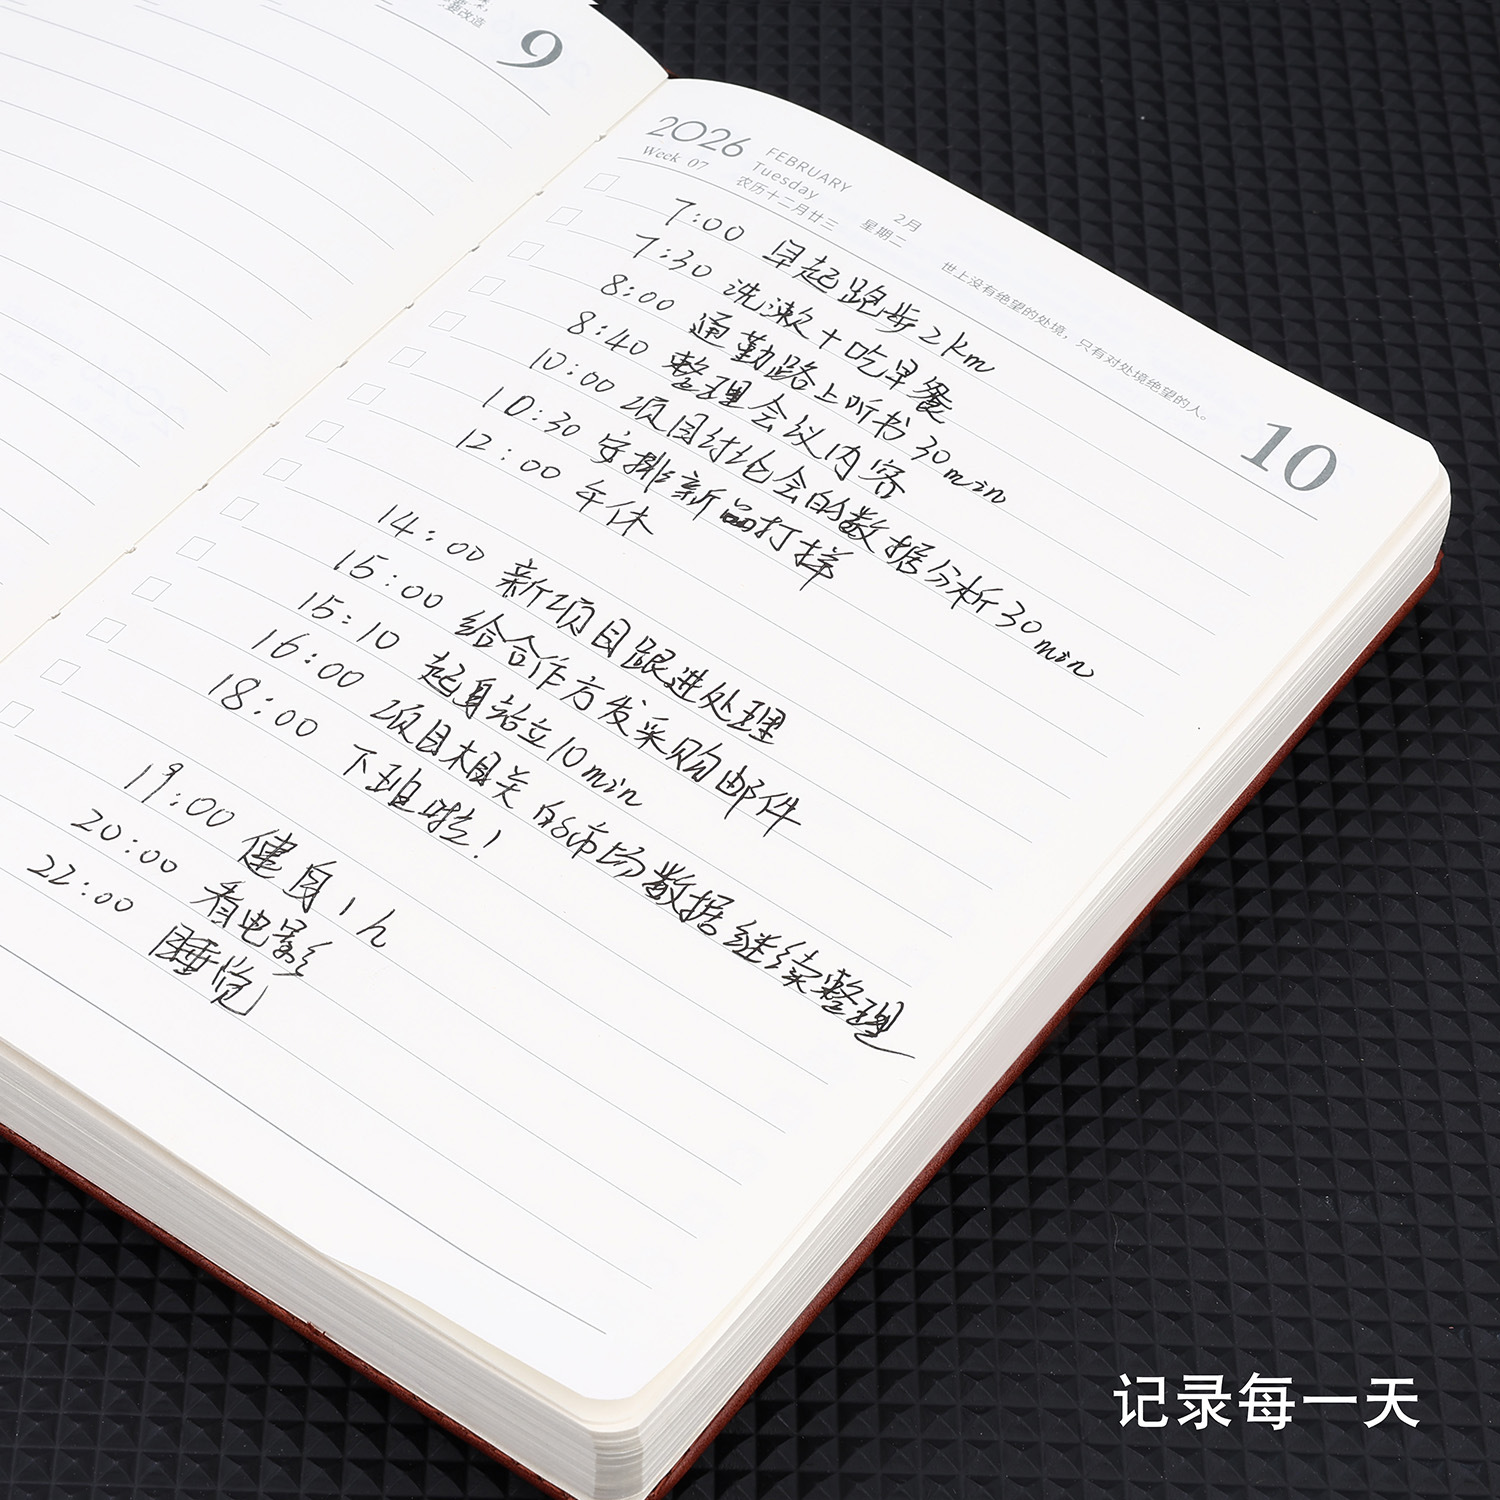 要改造
9
2026
FEBRUARY 2月
Week 07 Tuesday 星期二
农历十二月廿三
世上没有绝望的处境，只有对处境绝望的人。
10
7:00 早起跑步2km
7:30 洗漱+吃早餐
8:00 通勤路上听书30min
8:40 整理会议内容
10:00 项目讨论会的数据分析30min
10:30 安排新品打样
12:00 午休
14:00 新项目跟进处理
15:00 给合作方发采购邮件
15:10 起身站立10min
16:00 项目相关的市场数据继续整理
18:00 下班啦！
19:00 健身1h
20:00 看电影
22:00 睡觉
记录每一天